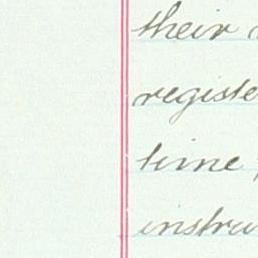 their
registe
time
instru